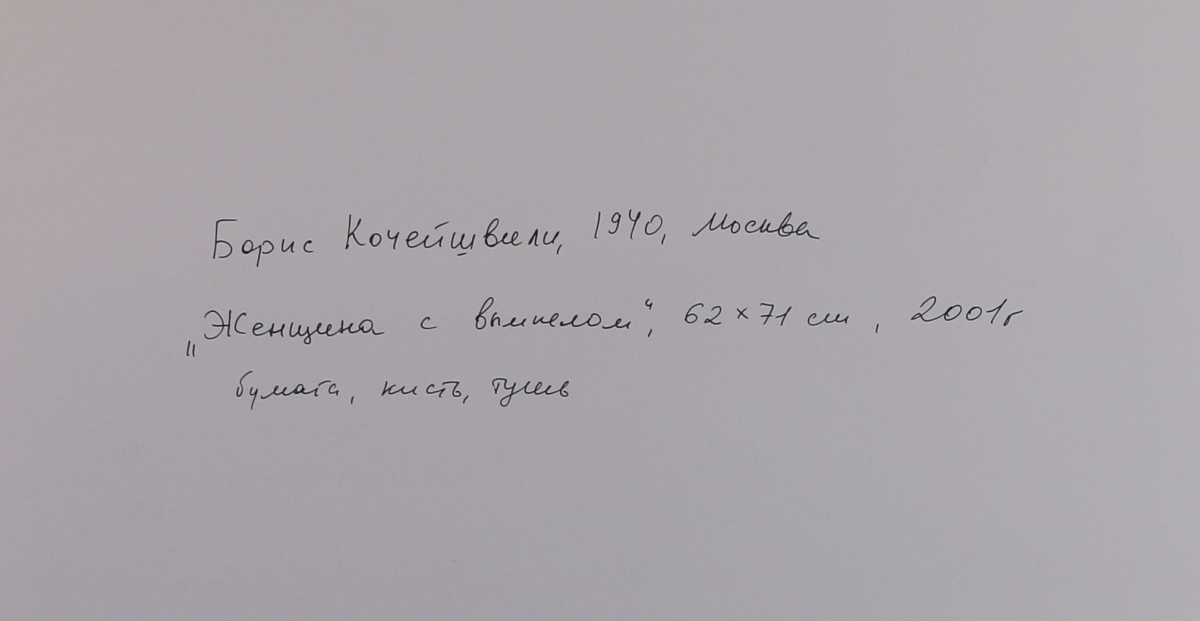 Борис Кочейшвили, 1940, Москва
„Женщина с вымпелом“, 62×71 см, 2001г
бумага, кисть, тушь